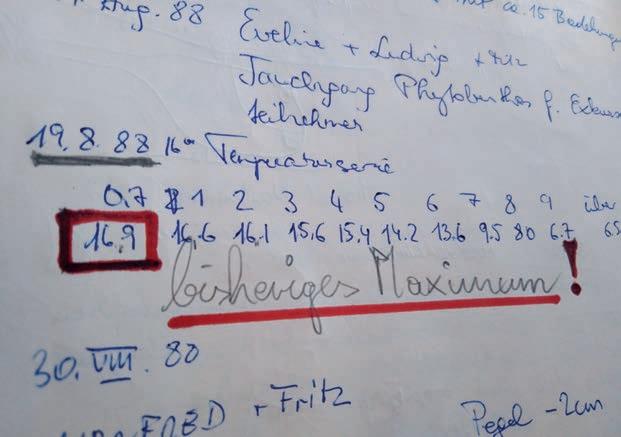 Aug. 88
ca. 15
Eveline + Ludwig + Fritz
Tauchgang Phytobenthos f.
teilnehmer
19.8.88 16⁰⁰ Temperaturserie
0.7 1 2 3 4 5 6 7 8 9 über
16.9 16.6 16.1 15.6 15.4 14.2 13.6 9.5 80 6.7 6.5
bisheriges Maximum!
30. VIII. 88
+ Fritz
Pegel -2cm